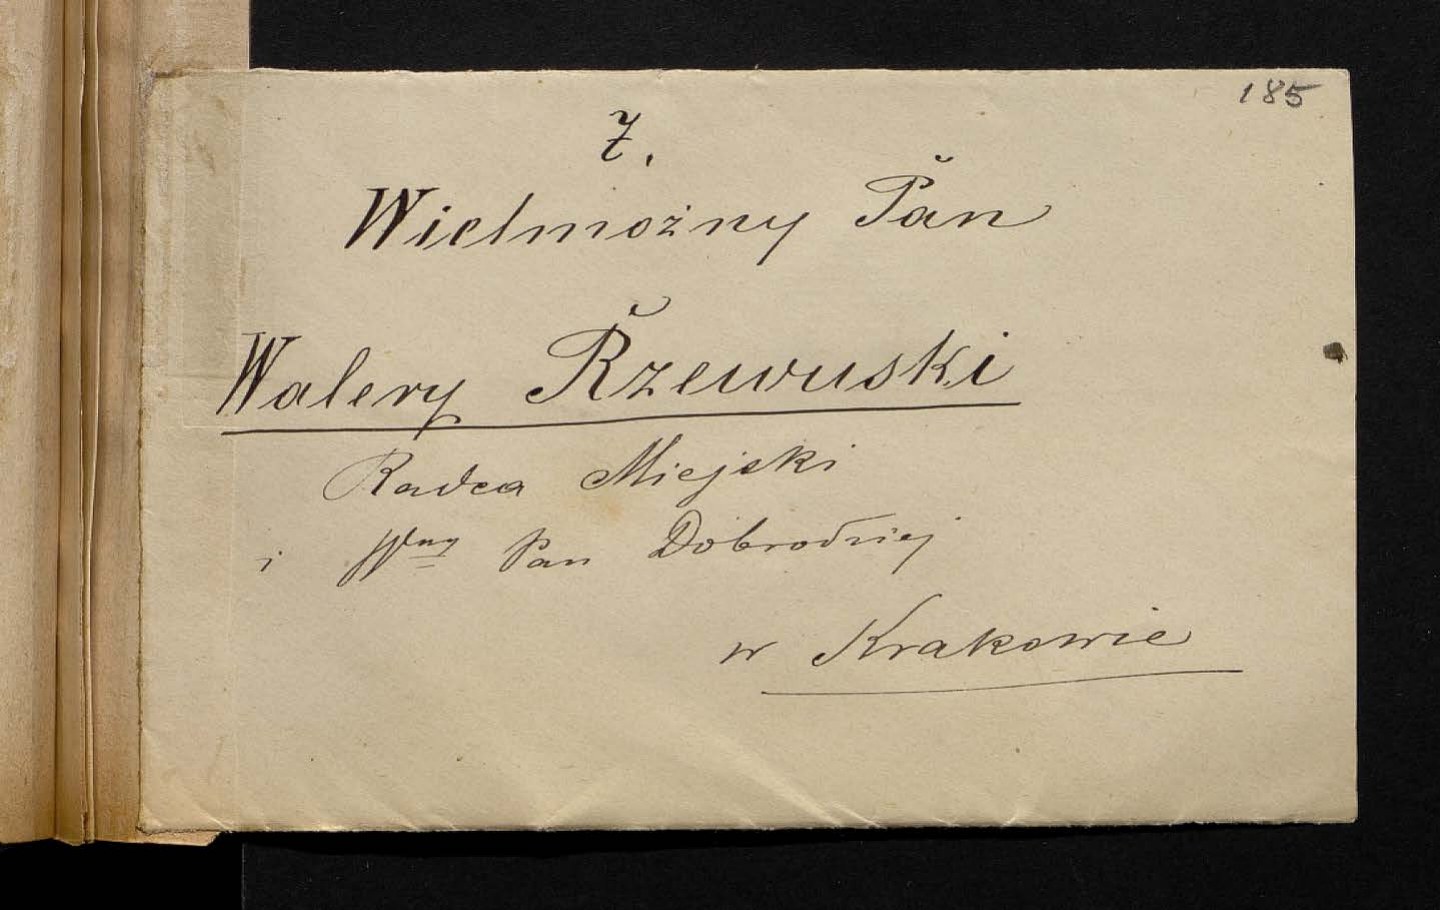 185
7.
Wielmożny Pan
Walery Rzewuski
Radca Miejski
i Wny Pan Dobrodziej
w Krakowie